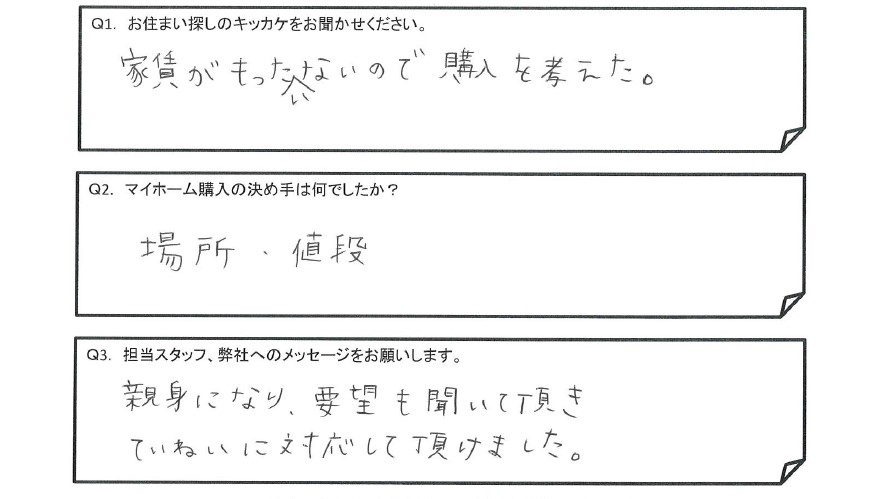 Q1. お住まい探しのキッカケをお聞かせください。
家賃がもったいないので購入を考えた。
Q2. マイホーム購入の決め手は何でしたか？
場所・値段
Q3. 担当スタッフ、弊社へのメッセージをお願いします。
親身になり、要望も聞いて頂き
ていねいに対応して頂けました。